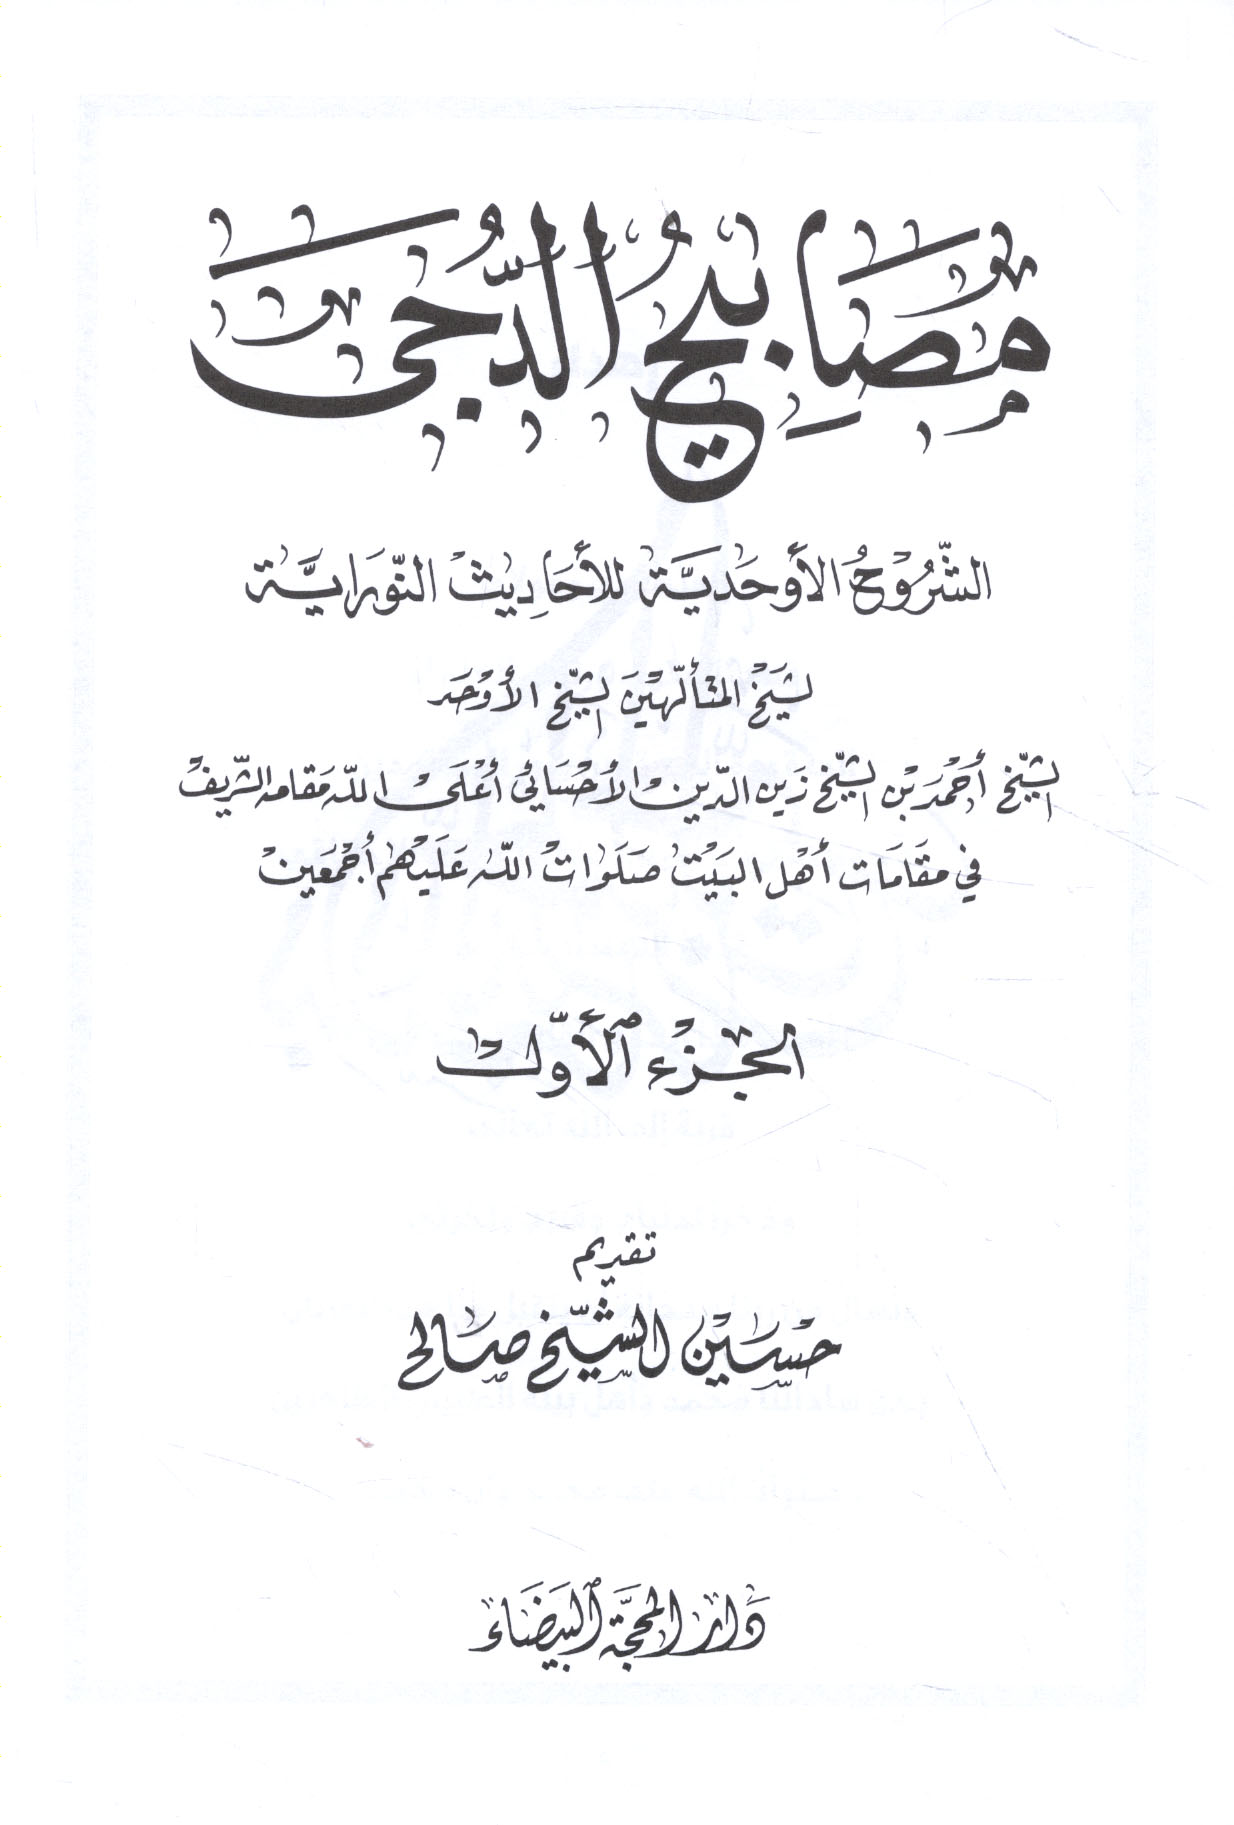 مَصَابِيحُ الدُّجَى
الشُّرُوحُ الأَوحَدِيَّة للأَحَادِيث النَّورانِيَّة
لشَيْخ المتألّهين الشّيخ الأَوْحَد
الشّيخ أَحْمَد بْن الشّيخ زَين الدّين الأَحْسَائي أَعْلَى اللّه مَقامه الشّريف
في مقَامَات أَهْل البَيْت صَلَوَاتُ اللّه عَلَيْهم أَجْمَعين
الجزْء الأَوّل
تقديم
حسَين الشّيخ صَالح
دَار المحجّة البَيضَاء